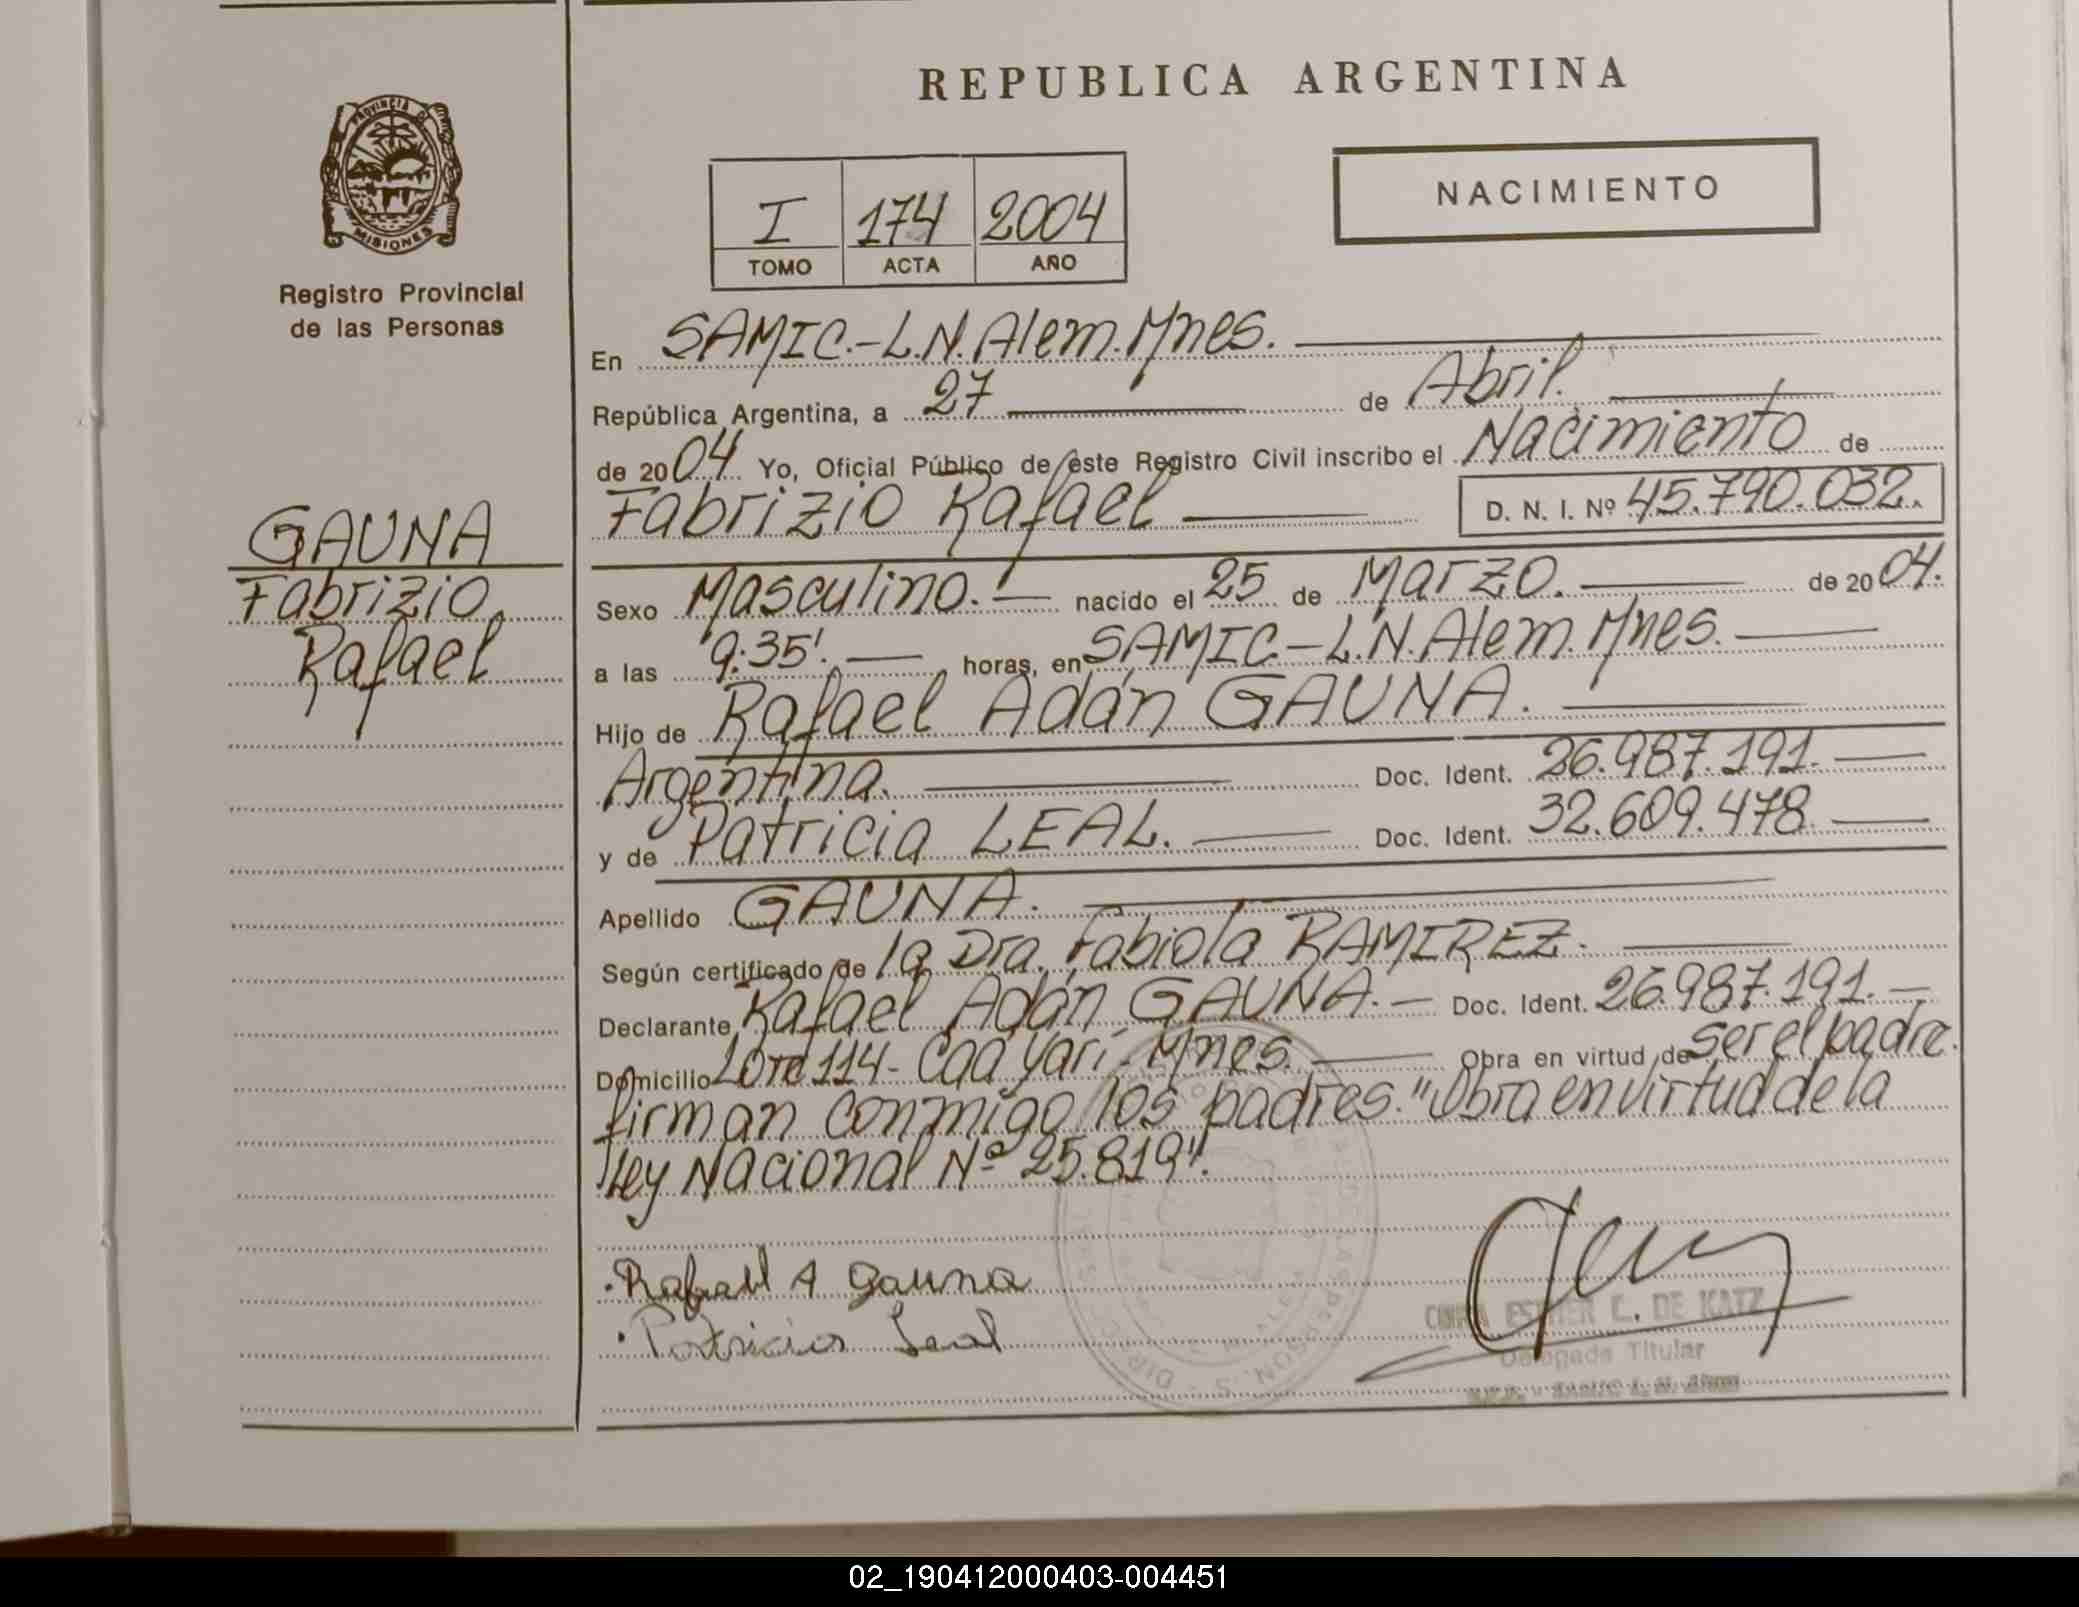 REPUBLICA ARGENTINA
PROVINCIA DE
MISIONES
Registro Provincial
de las Personas
NACIMIENTO
I 174 2004
TOMO ACTA AÑO
En SAMIC.-L.N.Alem.Mnes.
República Argentina, a 27 de Abril.
de 2004 Yo, Oficial Público de este Registro Civil inscribo el Nacimiento de
Fabrizio Rafael D. N. I. Nº 45.790.032.
GAUNA
Fabrizio
Rafael
Sexo Masculino. nacido el 25 de Marzo. de 2004.
a las 9:35'. horas, en SAMIC.-L.N.Alem.Mnes.
Hijo de Rafael Adán GAUNA.
Argentina. Doc. Ident. 26.987.191.
y de Patricia LEAL. Doc. Ident. 32.609.478.
Apellido GAUNA.
Según certificado de la Dra. Fabiola RAMIREZ.
Declarante Rafael Adán GAUNA. Doc. Ident. 26.987.191.
Domicilio Lote 114- Caa Yarí- Mnes. Obra en virtud de ser el padre.
firman conmigo los padres. "Obra en virtud de la
ley Nacional Nº 25.819".
Rafael A Gauna
Patricia Leal
ESTHER C. DE KATZ
Delegada Titular
02_190412000403-004451